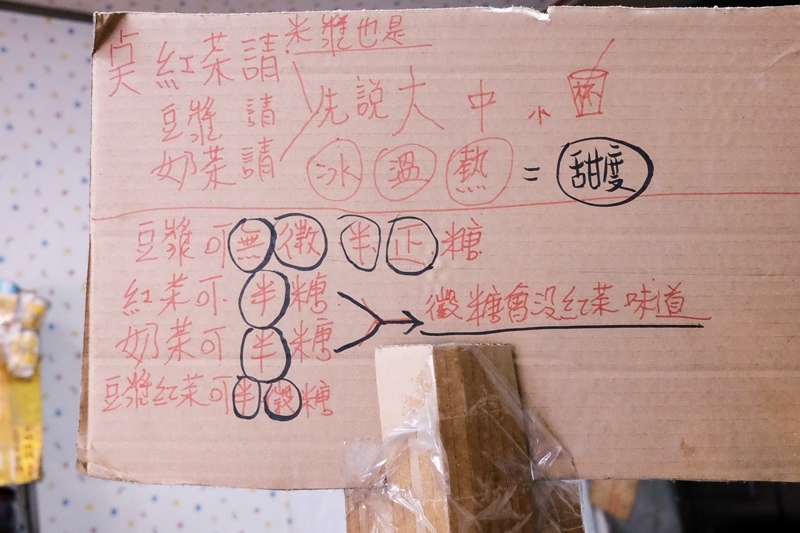 米漿也是
点 紅茶請
豆漿請
奶茶請
先說大 中 小 杯
冰 溫 熱 = 甜度
豆漿可無微半正糖
紅茶可半糖
奶茶可半糖
微糖會没紅茶味道
豆漿紅茶可半微糖